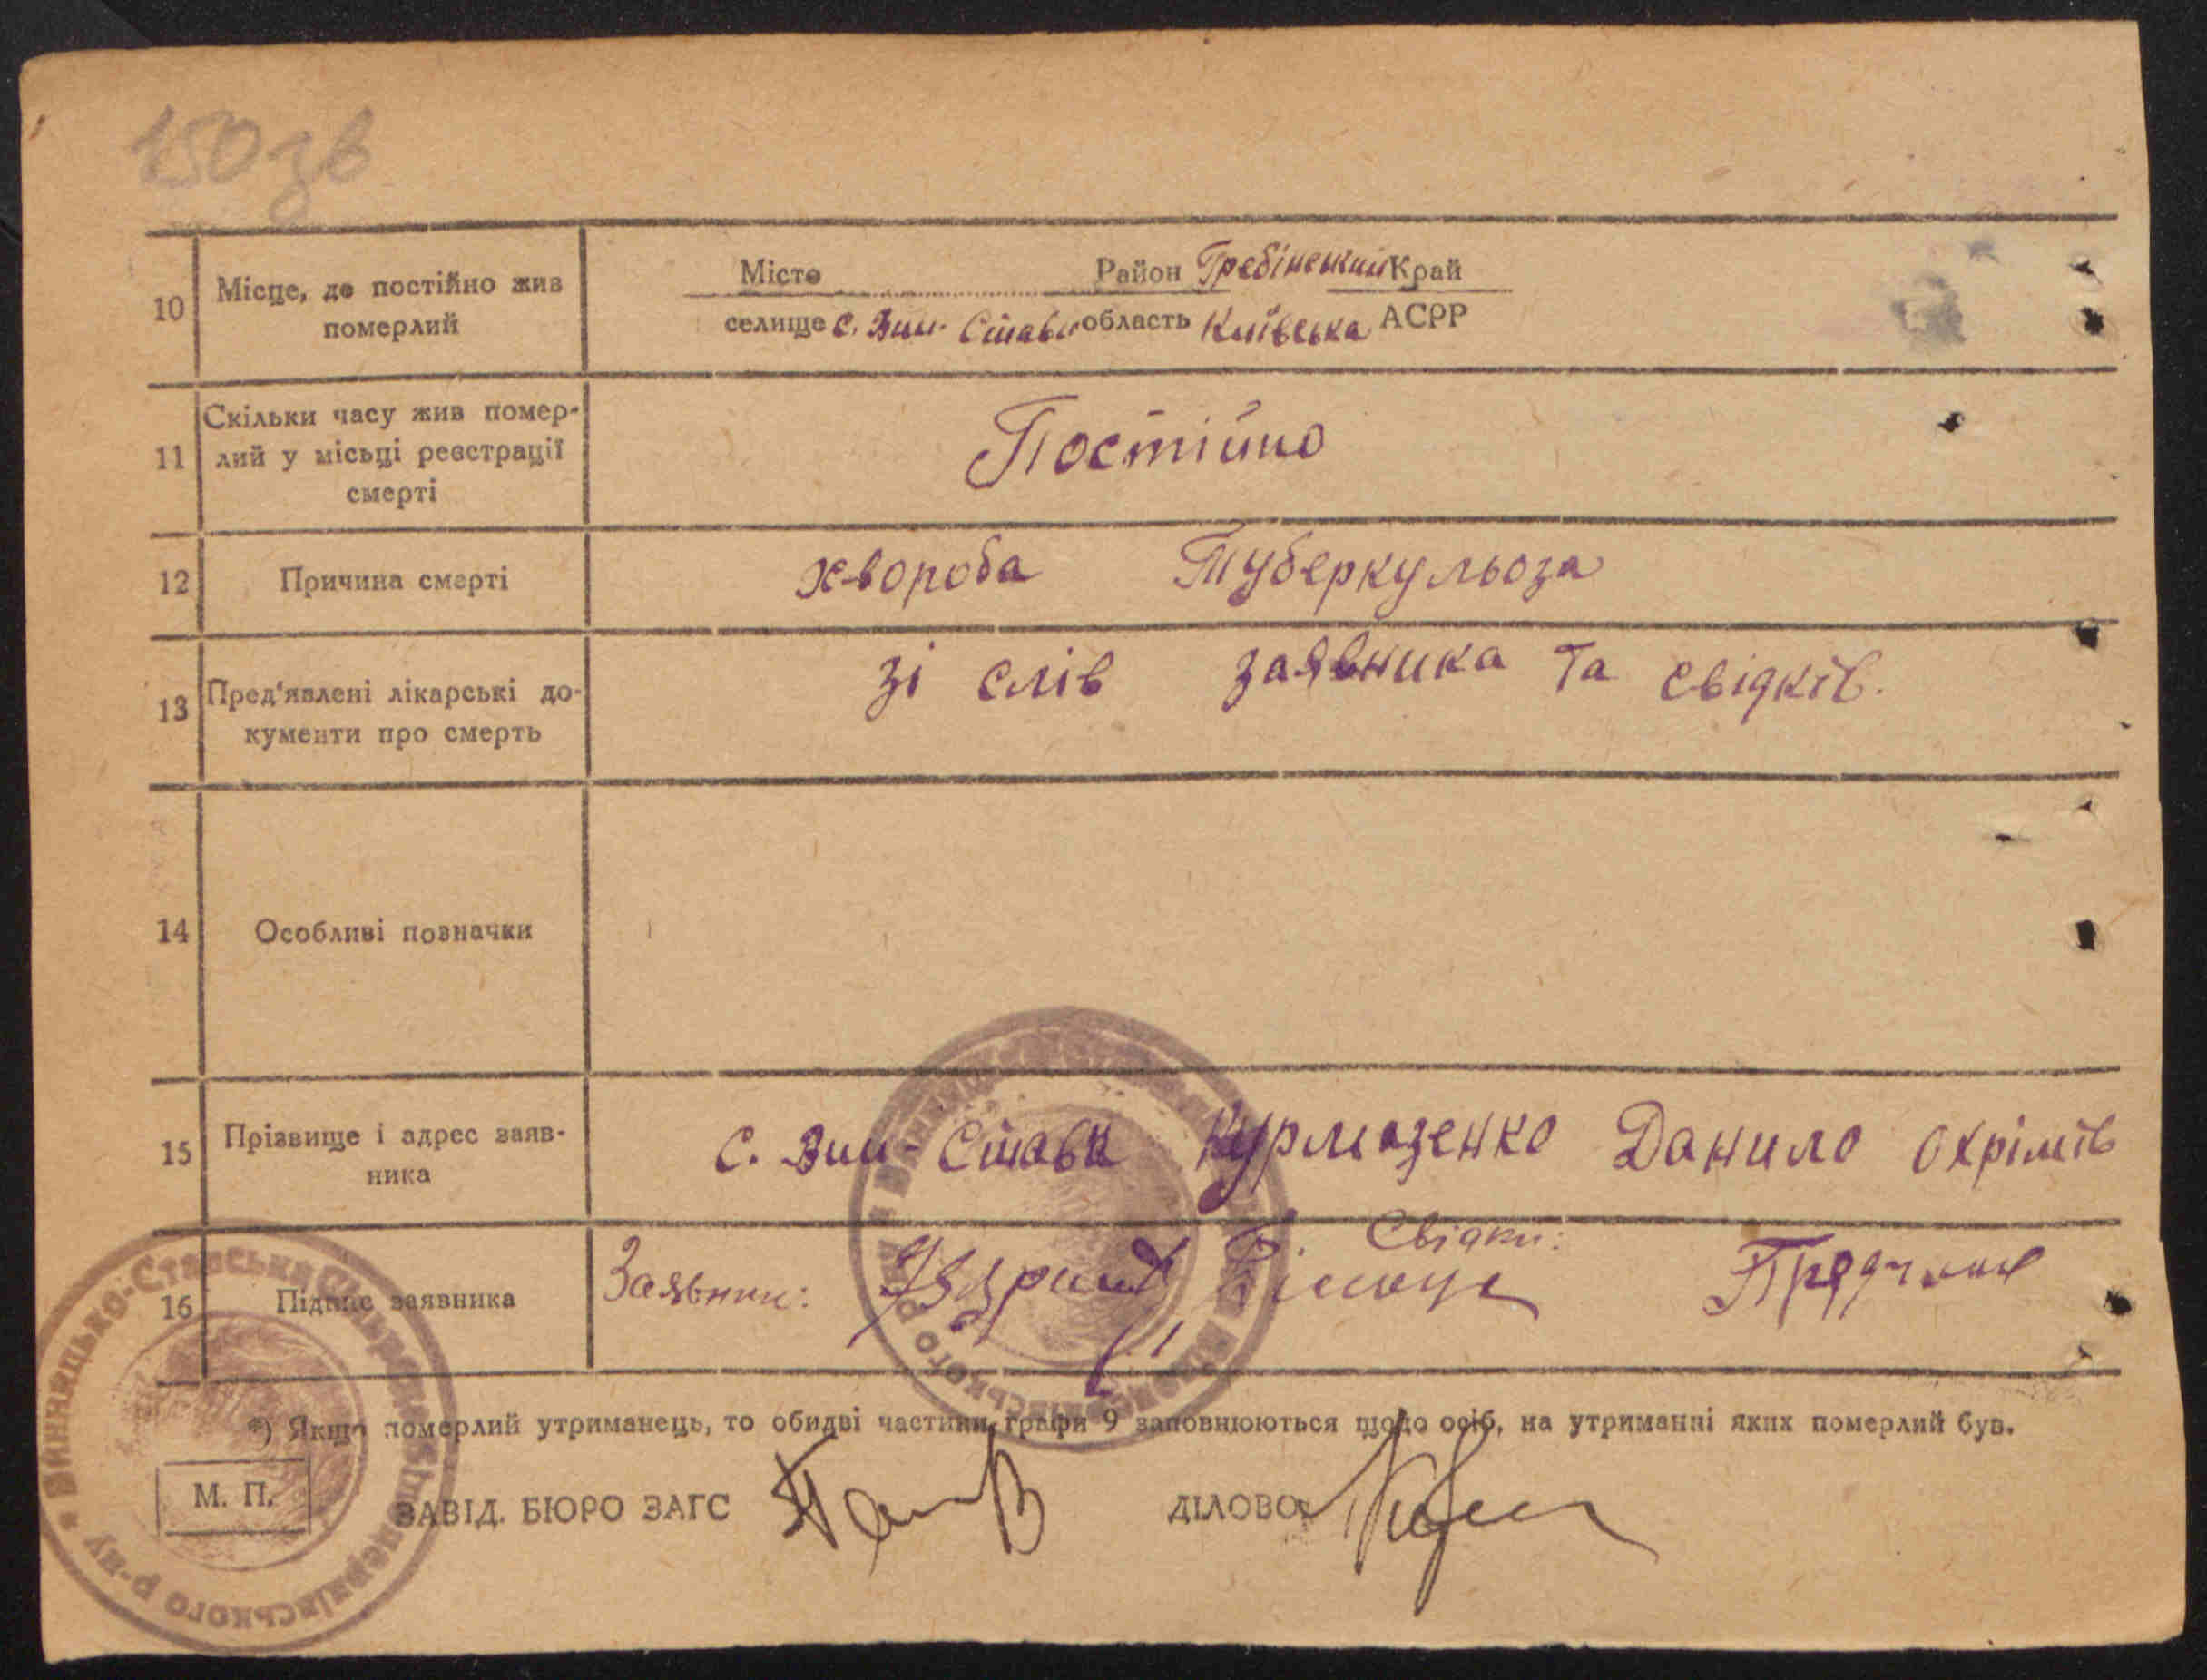 150 зв
10 Місце, де постійно жив померлий
Місто Район Гребінський Край
селище с. Вин-Стави область Київська АСРР
11 Скільки часу жив помер-
лий у місьці реєстрації
смерті
Постійно
12 Причина смерті
хвороба Туберкульоза
13 Пред'явлені лікарські до-
кументи про смерть
зі слів заявника та свідків.
14 Особливі позначки
15 Прізвище і адрес заяв-
ника
с. Вин-Стави Курмазенко Данило Охрімів
16 Підпис заявника
Заявник: Свідки:
*) Якщо померлий утриманець, то обидві частини графи 9 заповнюються щодо осіб, на утриманні яких померлий був.
М. П.
ЗАВІД. БЮРО ЗАГС ДІЛОВОД
Винницько-Ставська Сільрада Білоцерківського р-ну